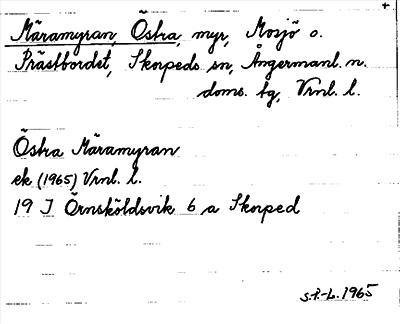 Märamyran, Östra, myr, Mosjö o.
Prästbordet, Skorpeds sn, Ångermanl. n.
doms. tg, Vrnl. l.
Östra Märamyran
ek (1965) Vrnl. l.
19 J Örnsköldsvik 6 a Skorped
S.P.-L. 1965